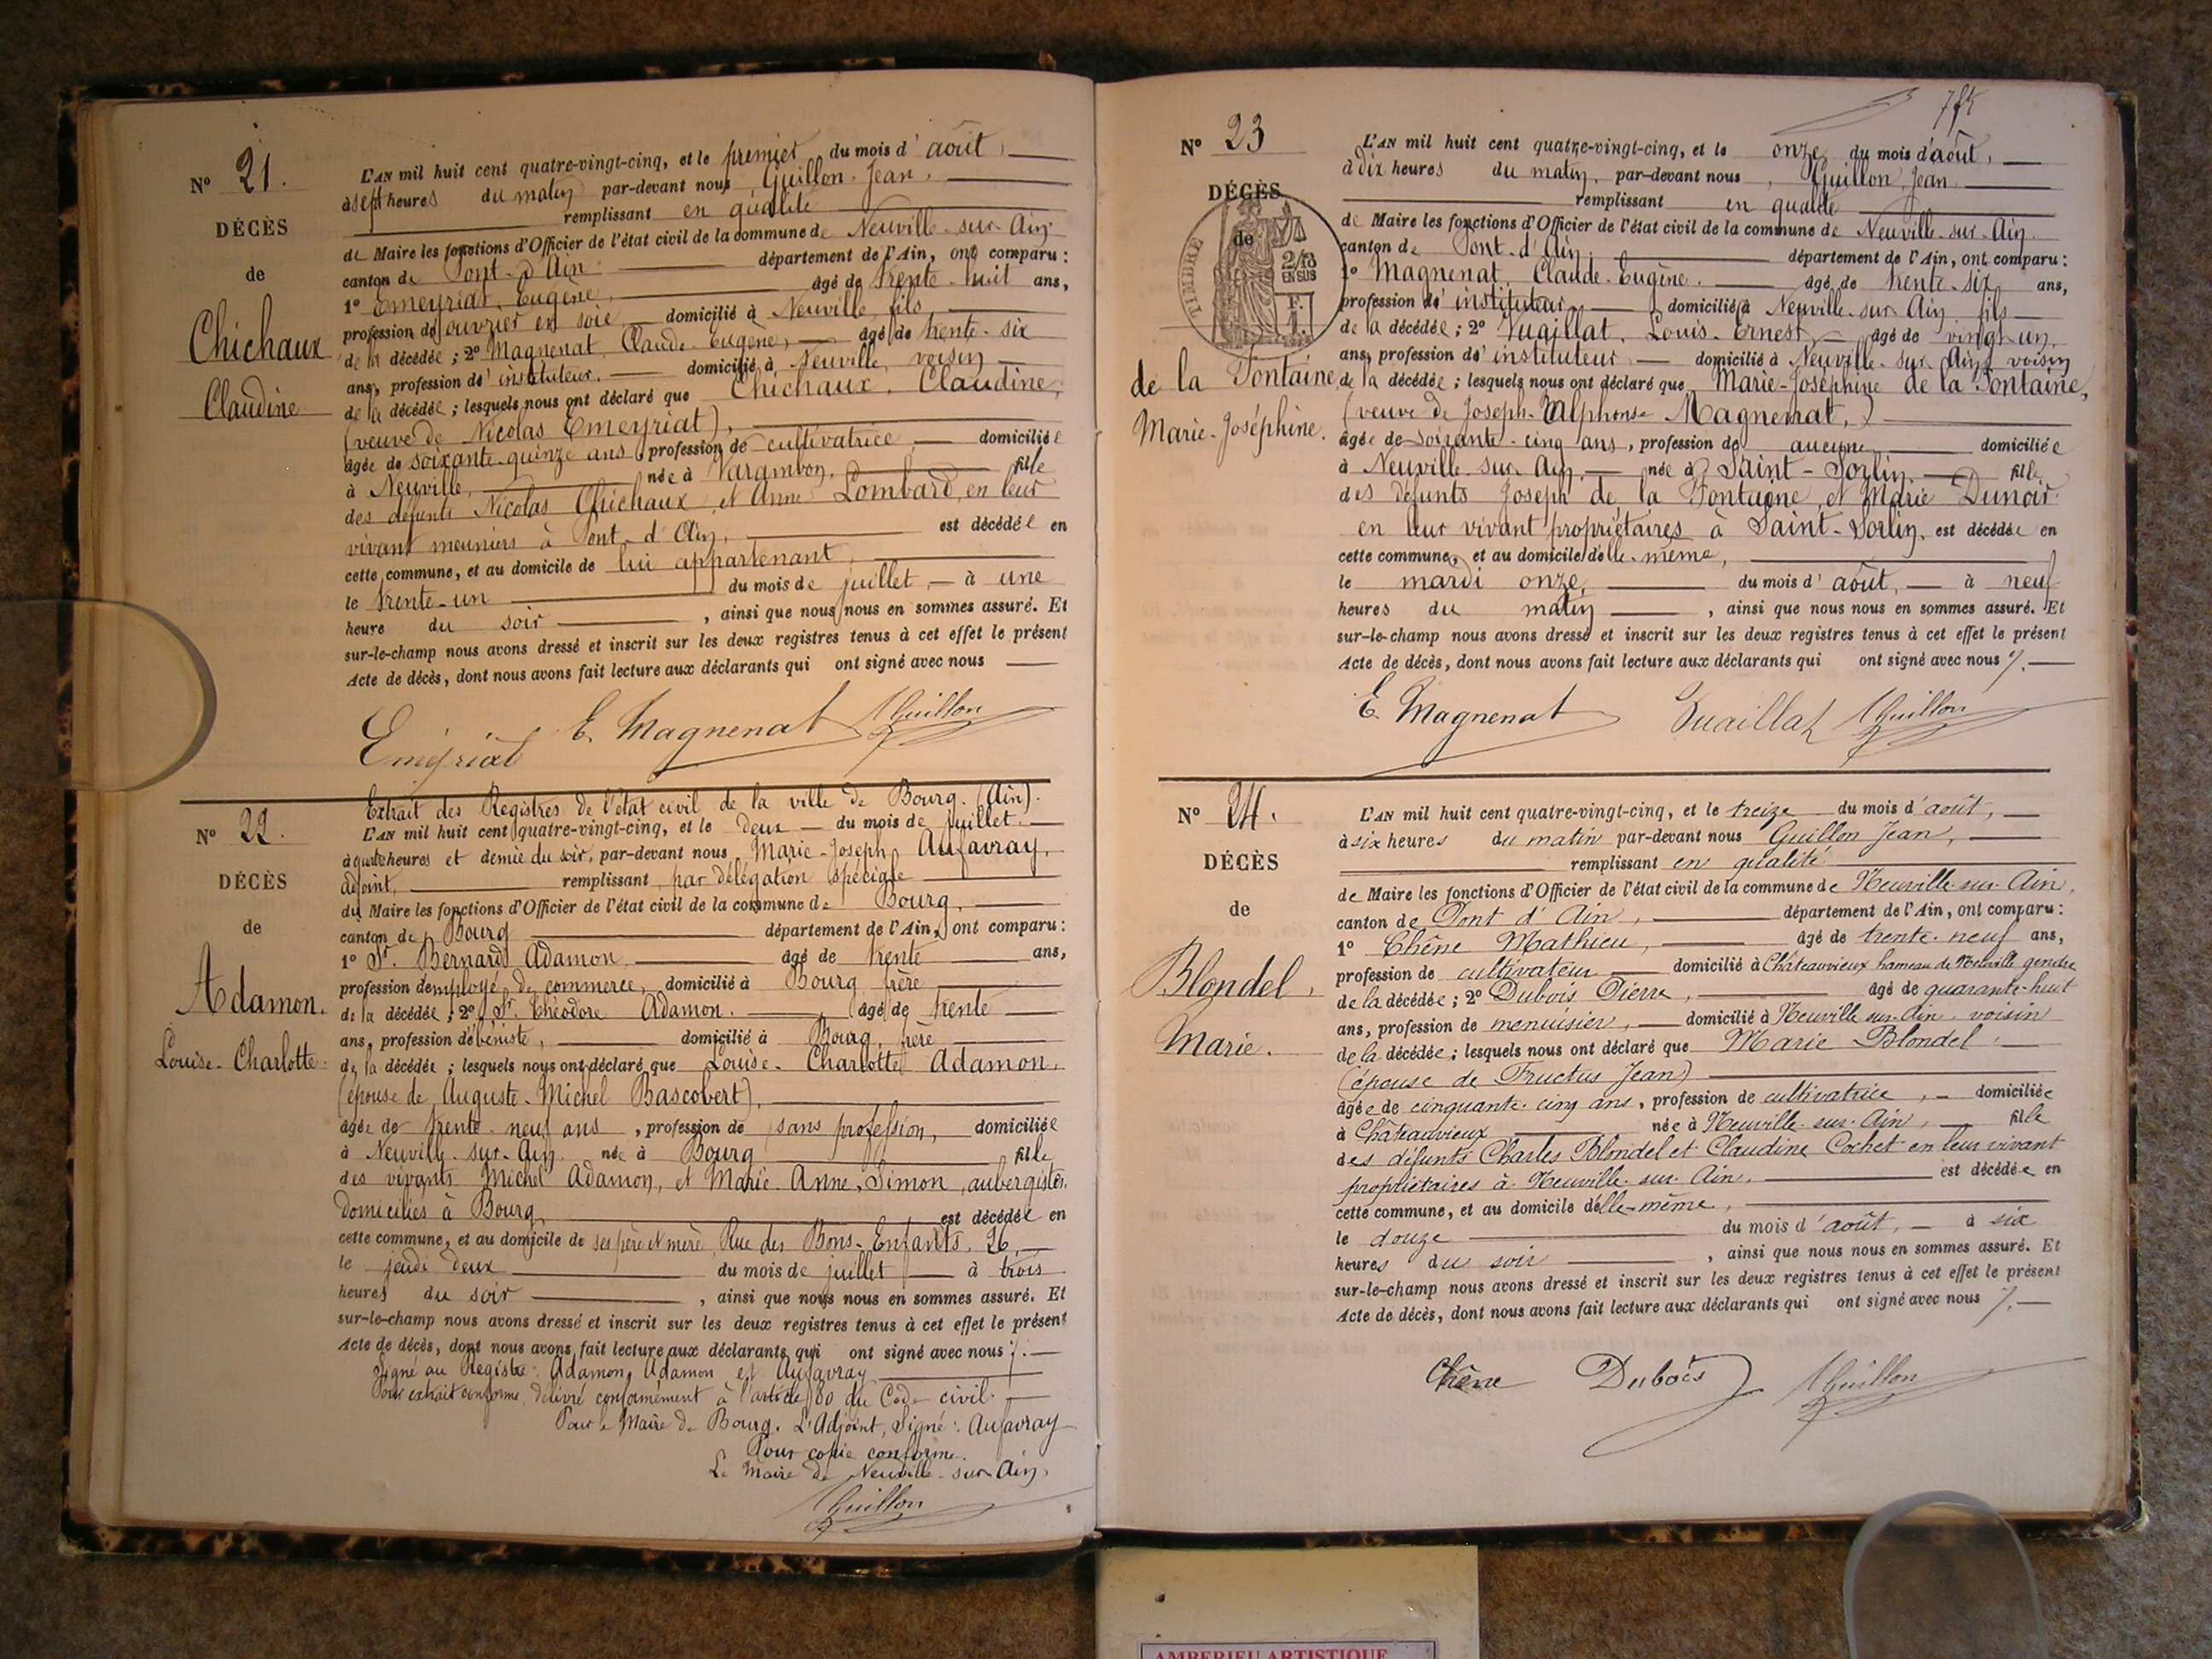 N° 21.
DÉCÈS
de
Chichaux
Claudine
L'AN mil huit cent quatre-vingt-cinq, et le premier du mois d'août,
à sept heures du matin par-devant nous, Guillon Jean,
remplissant en qualité
de Maire les fonctions d'Officier de l'état civil de la commune de Neuville-sur-Ain
canton de Pont-d'Ain département de l'Ain, ont comparu :
1° Emeyriat, Eugène, âgé de trente-huit ans,
profession de ouvrier en soie domicilié à Neuville, fils
de la décédée ; 2° Magnenat, Claude-Eugène, âgé de trente-six
ans, profession d'instituteur, domicilié à Neuville, voisin
de la décédée ; lesquels nous ont déclaré que Chichaux, Claudine,
(veuve de Nicolas Emeyriat),
âgée de soixante-quinze ans, profession de cultivatrice, domiciliée
à Neuville, née à Varambon, fille
des défunts Nicolas Chichaux et Anne Lombard, en leur
vivant meuniers à Pont-d'Ain, est décédée en
cette commune, et au domicile de lui appartenant,
le trente-un du mois de juillet, à une
heure du soir, ainsi que nous nous en sommes assuré. Et
sur-le-champ nous avons dressé et inscrit sur les deux registres tenus à cet effet le présent
Acte de décès, dont nous avons fait lecture aux déclarants qui ont signé avec nous
Emeyriat E. Magnenat JGuillon
N° 22.
DÉCÈS
de
Adamon.
Louise-Charlotte
Extrait des Registres de l'état civil de la ville de Bourg. (Ain).
L'AN mil huit cent quatre-vingt-cinq, et le deux du mois de juillet
à quatre heures et demie du soir, par-devant nous Marie-Joseph Aufavray,
adjoint, remplissant par délégation spéciale
du Maire les fonctions d'Officier de l'état civil de la commune de Bourg,
canton de Bourg département de l'Ain, ont comparu :
1° Sr. Bernard Adamon âgé de trente ans,
profession d'employé de commerce, domicilié à Bourg, frère
de la décédée ; 2° Sr. Théodore Adamon, âgé de trente
ans, profession d'ébéniste, domicilié à Bourg, frère
de la décédée ; lesquels nous ont déclaré que Louise-Charlotte Adamon,
(épouse de Auguste-Michel Bascobert),
âgée de trente-neuf ans, profession de sans profession, domiciliée
à Neuville-sur-Ain née à Bourg fille
des vivants Michel Adamon, et Marie-Anne Simon, aubergistes,
domiciliés à Bourg est décédée en
cette commune, et au domicile de ses père et mère, Rue des Bons-Enfants, 26,
le jeudi deux du mois de juillet à trois
heures du soir, ainsi que nous nous en sommes assuré. Et
sur-le-champ nous avons dressé et inscrit sur les deux registres tenus à cet effet le présent
Acte de décès, dont nous avons fait lecture aux déclarants qui ont signé avec nous ./.
Signé au Registre : Adamon, Adamon et Aufavray
Pour extrait conforme, délivré conformément à l'article 80 du Code civil.
Pour le Maire de Bourg. L'Adjoint, Signé : Aufavray
Pour copie conforme.
Le Maire de Neuville-sur-Ain,
JGuillon
N° 23
DÉCÈS
de
TIMBRE
2/10
EN SUS
de la Fontaine
Marie-Joséphine.
L'AN mil huit cent quatre-vingt-cinq, et le onze du mois d'août,
à dix heures du matin, par-devant nous, Guillon, Jean
remplissant en qualité
de Maire les fonctions d'Officier de l'état civil de la commune de Neuville-sur-Ain
canton de Pont-d'Ain département de l'Ain, ont comparu :
1° Magnenat, Claude-Eugène, âgé de trente-six ans,
profession d'instituteur domicilié à Neuville-sur-Ain, fils
de la décédée ; 2° Vuaillat, Louis-Ernest, âgé de vingt-un
ans, profession d'instituteur domicilié à Neuville-sur-Ain, voisin
de la décédée ; lesquels nous ont déclaré que Marie-Joséphine de la Fontaine,
(veuve de Joseph-Alphonse Magnenat,)
âgée de soixante-cinq ans, profession de aucune domiciliée
à Neuville-sur-Ain, née à Saint-Sorlin, fille
des défunts Joseph de la Fontaine et Marie Dunoir
en leur vivant propriétaires à Saint-Sorlin, est décédée en
cette commune, et au domicile d'elle-même,
le mardi onze, du mois d'août, à neuf
heures du matin, ainsi que nous nous en sommes assuré. Et
sur-le-champ nous avons dressé et inscrit sur les deux registres tenus à cet effet le présent
Acte de décès, dont nous avons fait lecture aux déclarants qui ont signé avec nous ./.
E. Magnenat Vuaillat JGuillon
N° 24.
DÉCÈS
de
Blondel,
Marie.
L'AN mil huit cent quatre-vingt-cinq, et le treize du mois d'août,
à six heures du matin par-devant nous Guillon Jean,
remplissant en qualité
de Maire les fonctions d'Officier de l'état civil de la commune de Neuville-sur-Ain,
canton de Pont d'Ain, département de l'Ain, ont comparu :
1° Chêne Mathieu, âgé de trente-neuf ans,
profession de cultivateur domicilié à Châteauvieux hameau de Neuville gendre
de la décédée ; 2° Dubois Pierre, âgé de quarante-huit
ans, profession de menuisier, domicilié à Neuville-sur-Ain voisin
de la décédée ; lesquels nous ont déclaré que Marie Blondel,
(épouse de Fructus Jean)
âgée de cinquante-cinq ans, profession de cultivatrice, domiciliée
à Châteauvieux née à Neuville-sur-Ain, fille
des défunts Charles Blondel et Claudine Cochet en leur vivant
propriétaires à Neuville-sur-Ain, est décédée en
cette commune, et au domicile d'elle-même,
le douze du mois d'août, à six
heures du soir, ainsi que nous nous en sommes assuré. Et
sur-le-champ nous avons dressé et inscrit sur les deux registres tenus à cet effet le présent
Acte de décès, dont nous avons fait lecture aux déclarants qui ont signé avec nous ./.
Chêne Dubois JGuillon
AMBERIEU ARTISTIQUE